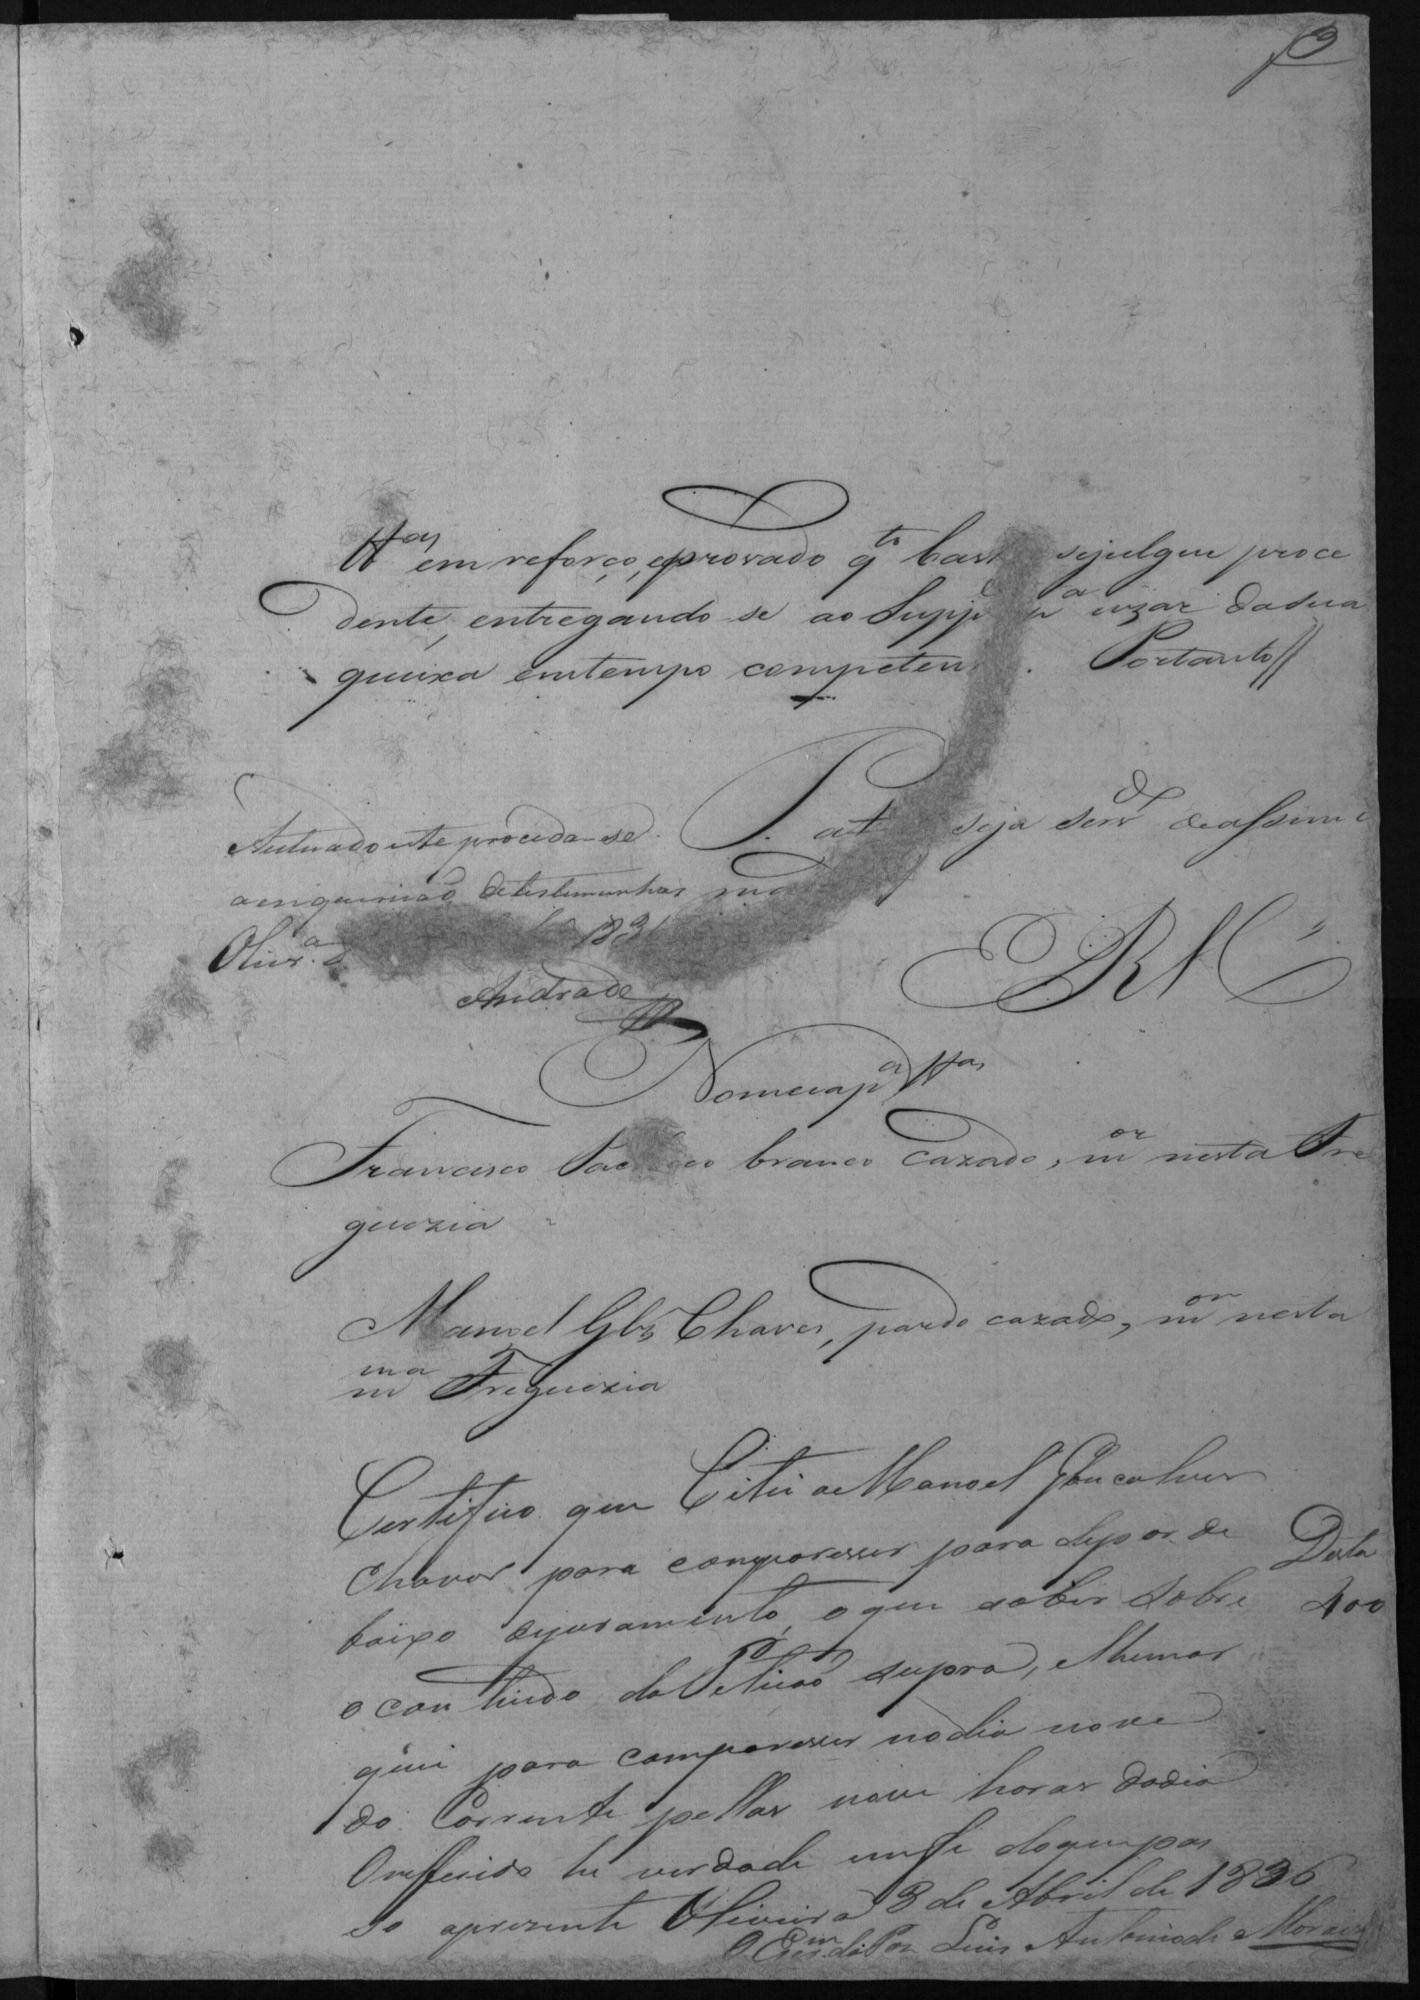 3
ttas em reforço, e provado qto bas se julgue proce
dente, entregando se ao Supp pa uzar da sua
queixa em tempo competen . Portanto //
P. a seja servdo de assim o
Autuado este proceda-se
a enquirição de testemunhas
Olivra 183
Andrade
E R M
Nomeia pa ttas
Francisco Pacheco branco cazado, mor nesta Fre
guezia
Manoel Glz Chaves, pardo cazado, mor nesta
mma Freguezia
Certifico que Citei a Manoel Gonçalves
Chaves para comparesser para depor de
baixo de juramento, o que souber sobre
Desta
400
o contiudo da Petição supra, e
para comparesser no dia nove
do Corrente pellas nove horas do dia
O refferido he verdade em fé do que pas
so a prezente Oliveira 8 de Abril de 1836
O Esm de Paz Luis Antonio de Moraes